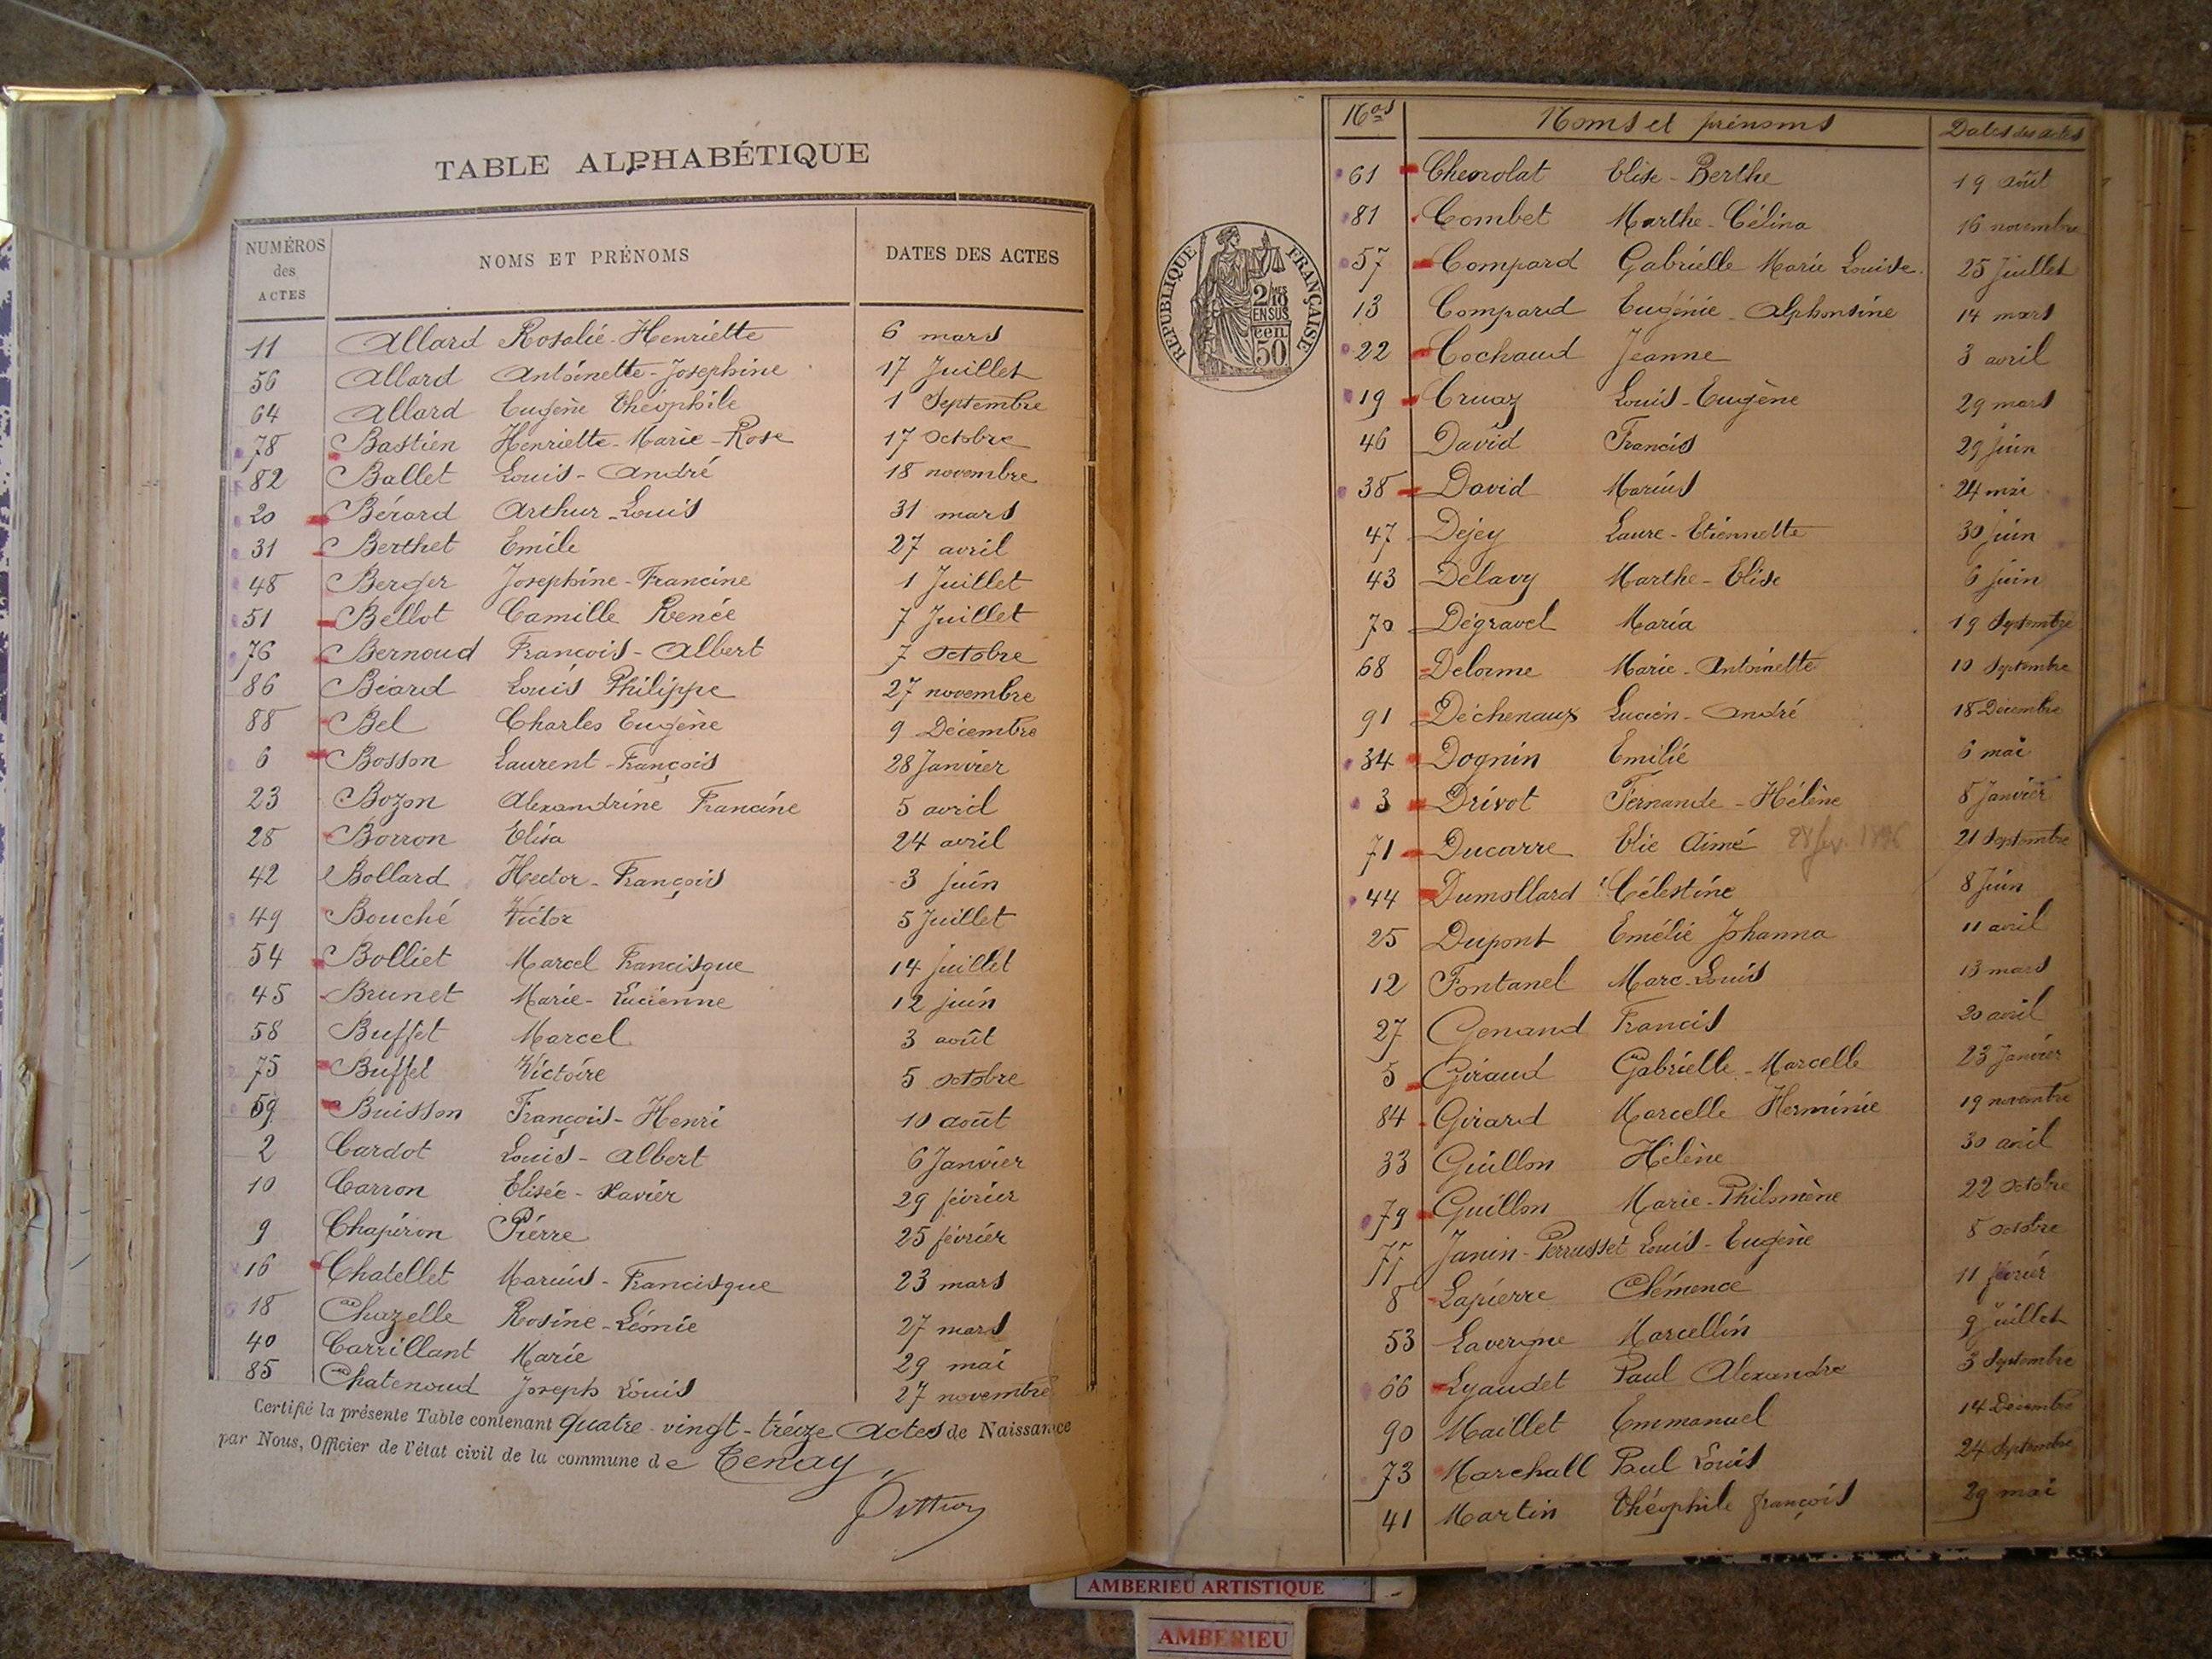 TABLE ALPHABÉTIQUE
NUMÉROS des ACTES NOMS ET PRÉNOMS DATES DES ACTES
11 Allard Rosalie-Henriette 6 mars
56 Allard Antoinette-Josephine 17 Juillet
64 Allard Eugène Théophile 1 Septembre
78 Bastien Henriette-Marie-Rose 17 Octobre
82 Ballet Louis-André 18 novembre
20 Bérard Arthur-Louis 31 mars
31 Berthet Emile 27 avril
48 Berger Josephine-Francine 1 Juillet
51 Bellot Camille Renée 7 Juillet
76 Bernoud François-Albert 7 Octobre
86 Béard Louis Philippe 27 novembre
88 Bel Charles Eugène 9 Décembre
6 Bosson Laurent-François 28 Janvier
23 Bozon Alexandrine Francine 5 avril
28 Borron Elisa 24 avril
42 Bollard Hector-François 3 juin
49 Bouché Victor 5 Juillet
54 Bolliet Marcel Francisque 14 juillet
45 Brunet Marie-Lucienne 12 juin
58 Buffet Marcel 3 août
75 Buffet Victoire 5 octobre
59 Buisson François-Henri 10 août
2 Cardot Louis-Albert 6 Janvier
10 Carron Elisée-Xavier 29 février
9 Chapiron Pierre 25 février
16 Chatellet Marius-Francisque 23 mars
18 Chazelle Rosine-Léonie 27 mars
40 Carrillant Marie 29 mai
85 Chatenoud Joseph Louis 27 novembre
Certifié la présente Table contenant quatre-vingt-treize Actes de Naissance
par Nous, Officier de l'état civil de la commune de Tenay,
Nos Noms et prénoms Dates des actes
61 Chevrolat Elise-Berthe 19 août
81 Combet Marthe-Célina 16 novembre
57 Compard Gabrielle Marie Louise 25 Juillet
13 Compard Eugénie-Alphonsine 14 mars
22 Cochaud Jeanne 3 avril
19 Cruaz Louis-Eugène 29 mars
46 David Francis 29 juin
38 David Marius 24 mai
47 Dejey Laure-Etiennette 30 juin
43 Delavy Marthe-Elise 6 juin
70 Dégravel Maria 19 Septembre
68 Delorme Marie-Antoinette 10 Septembre
91 Déchenaux Lucien-André 18 Décembre
34 Dognin Emilie 6 mai
3 Drivot Fernande-Hélène 8 Janvier
71 Ducarre Elie Aimé 21 Septembre
44 Dumollard Célestine 8 Juin
25 Dupont Emélie Johanna 11 avril
12 Fontanel Marc-Louis 13 mars
27 Genand Francis 20 avril
5 Giraud Gabrielle-Marcelle 23 Janvier
84 Girard Marcelle Herminie 19 novembre
33 Guillon Hélène 30 avril
79 Guillon Marie-Philomène 22 Octobre
77 Janin-Perrusset Louis-Eugène 8 Octobre
8 Lapierre Clémence 11 février
53 Lavergne Marcellin 9 juillet
66 Lyaudet Paul Alexandre 3 Septembre
90 Maillet Emmanuel 14 Décembre
73 Marchall Paul Louis 24 Septembre
41 Martin Théophile françois 29 mai
RÉPUBLIQUE FRANÇAISE
2/10 EN SUS
cen
50
AMBERIEU ARTISTIQUE
AMBERIEU